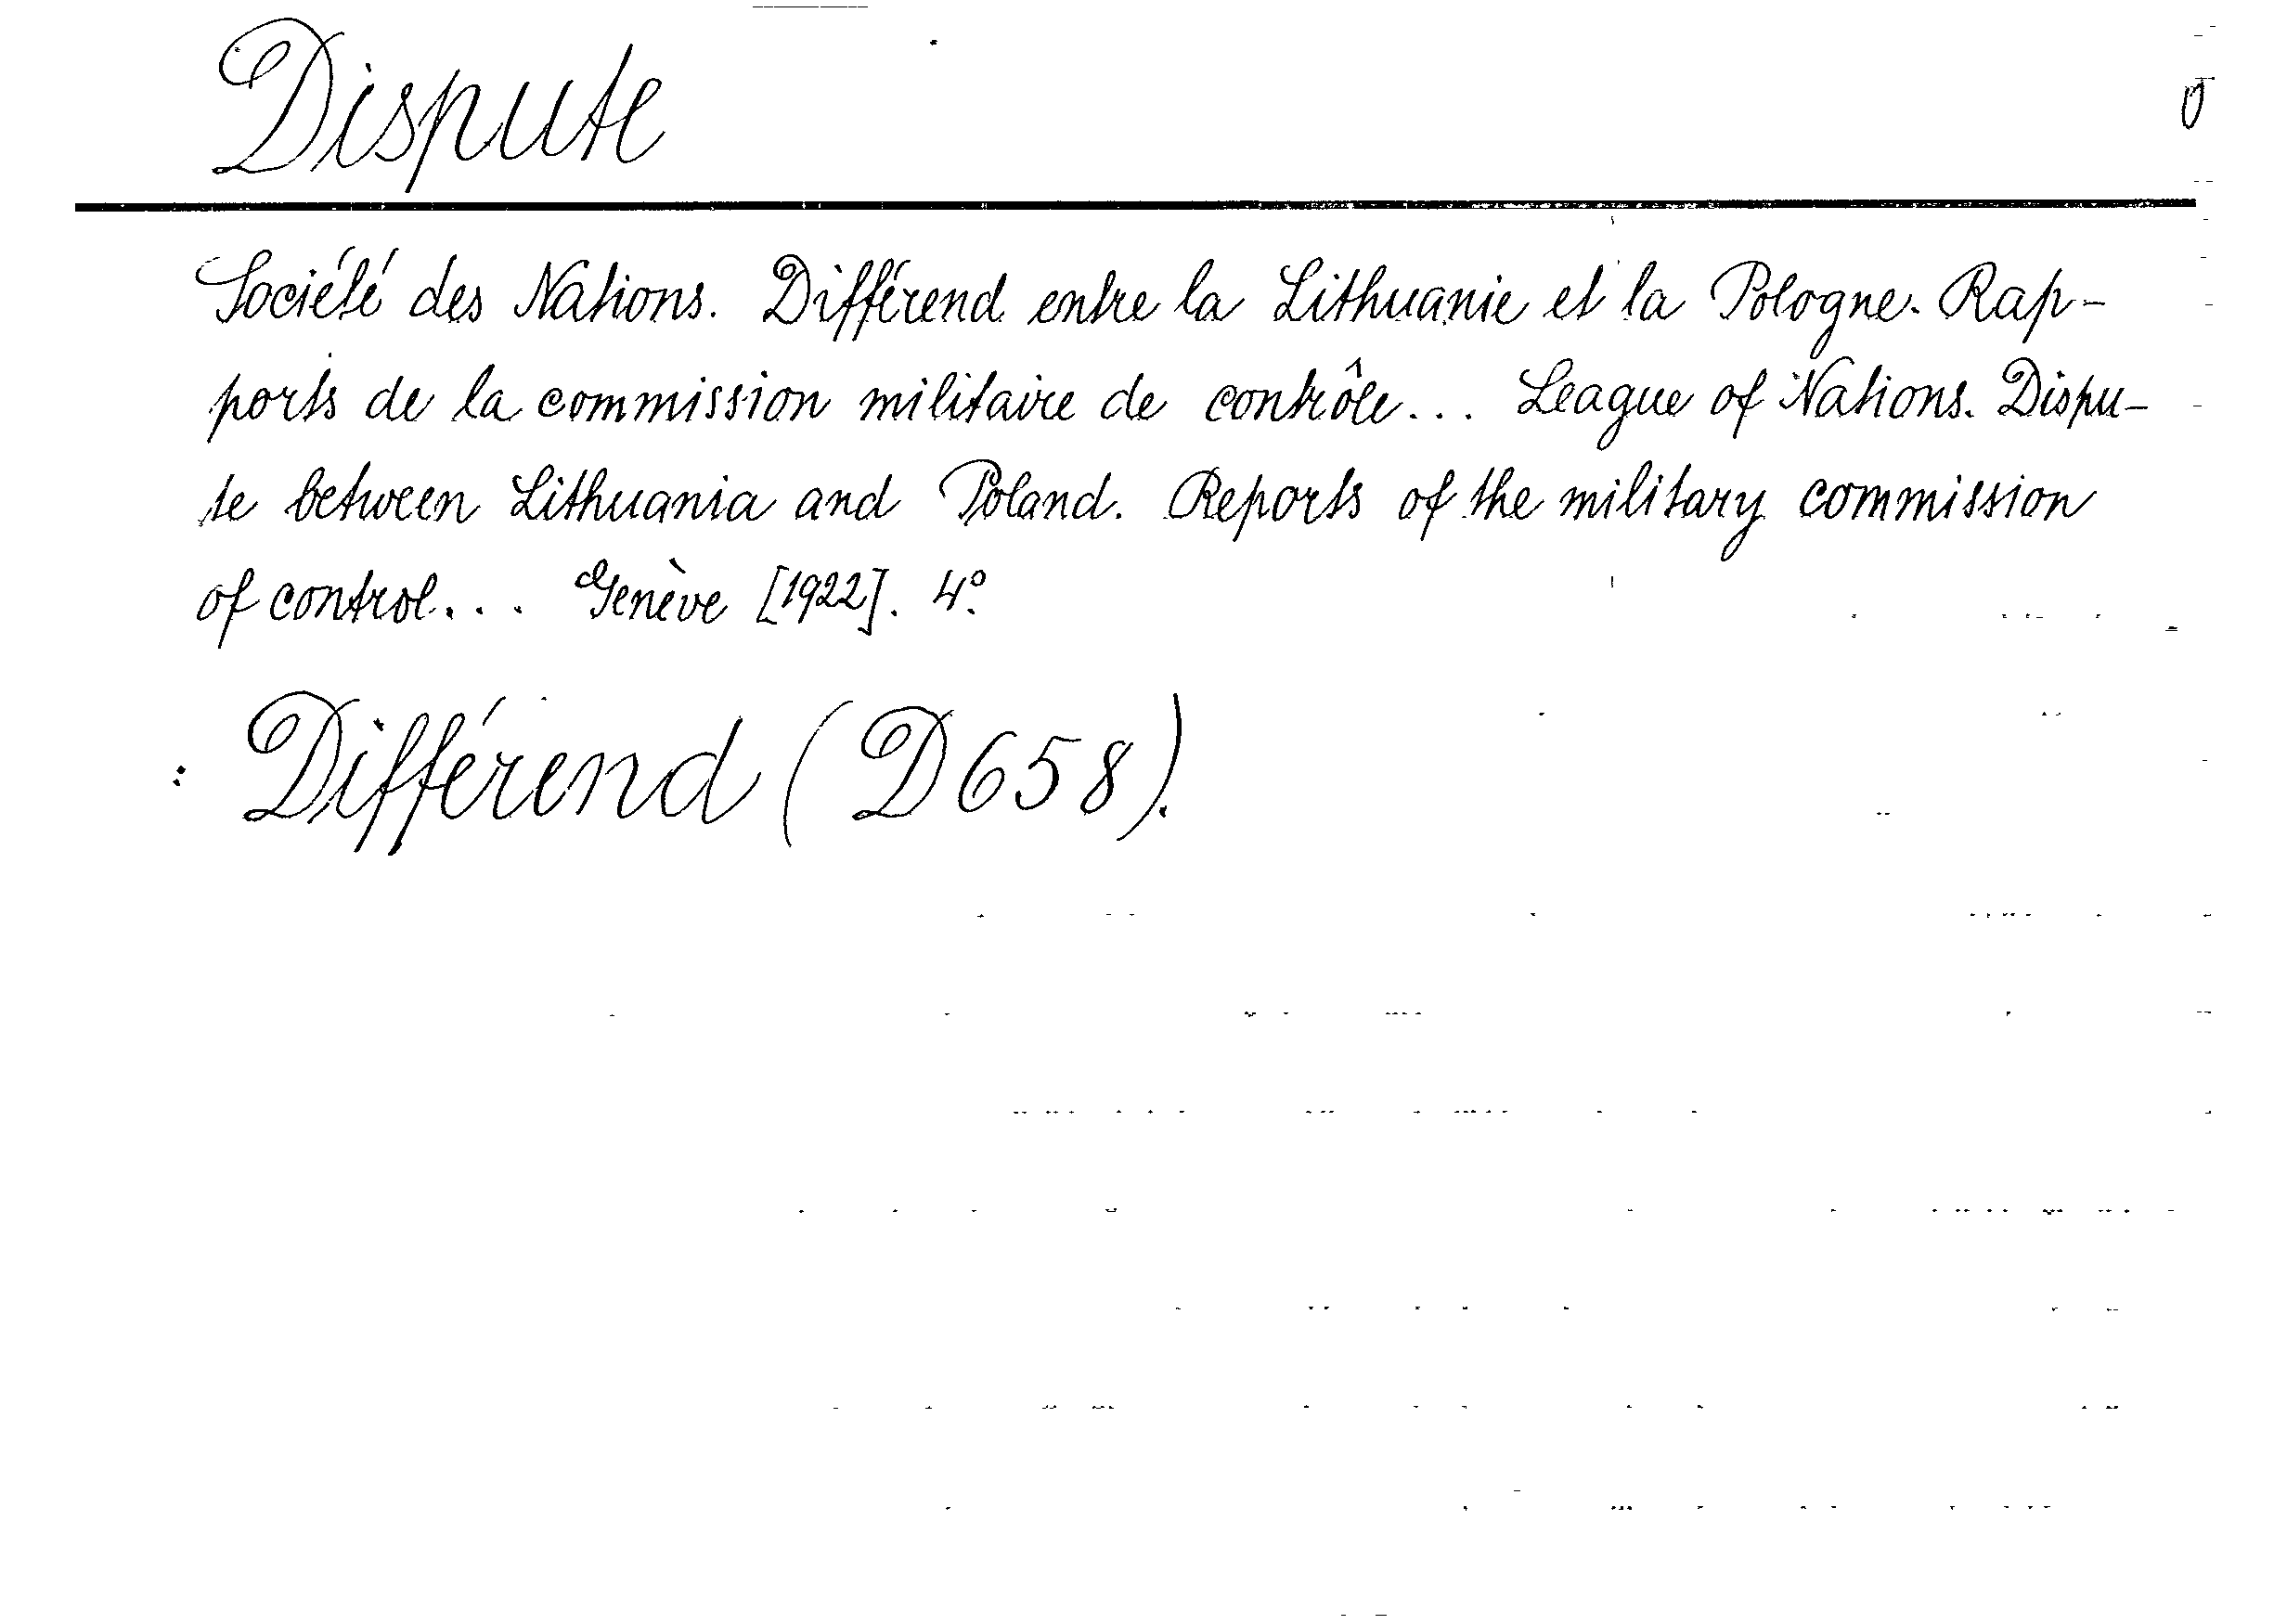 Dispute
Société des Nations. Différend entre la Lithuanie et la Pologne. Rap-
ports de la commission militaire de contrôle... League of Nations. Dispu-
te between Lithuania and Poland. Reports of the military commission
of control... Genève [1922]. 4º.
: Différend (D658).